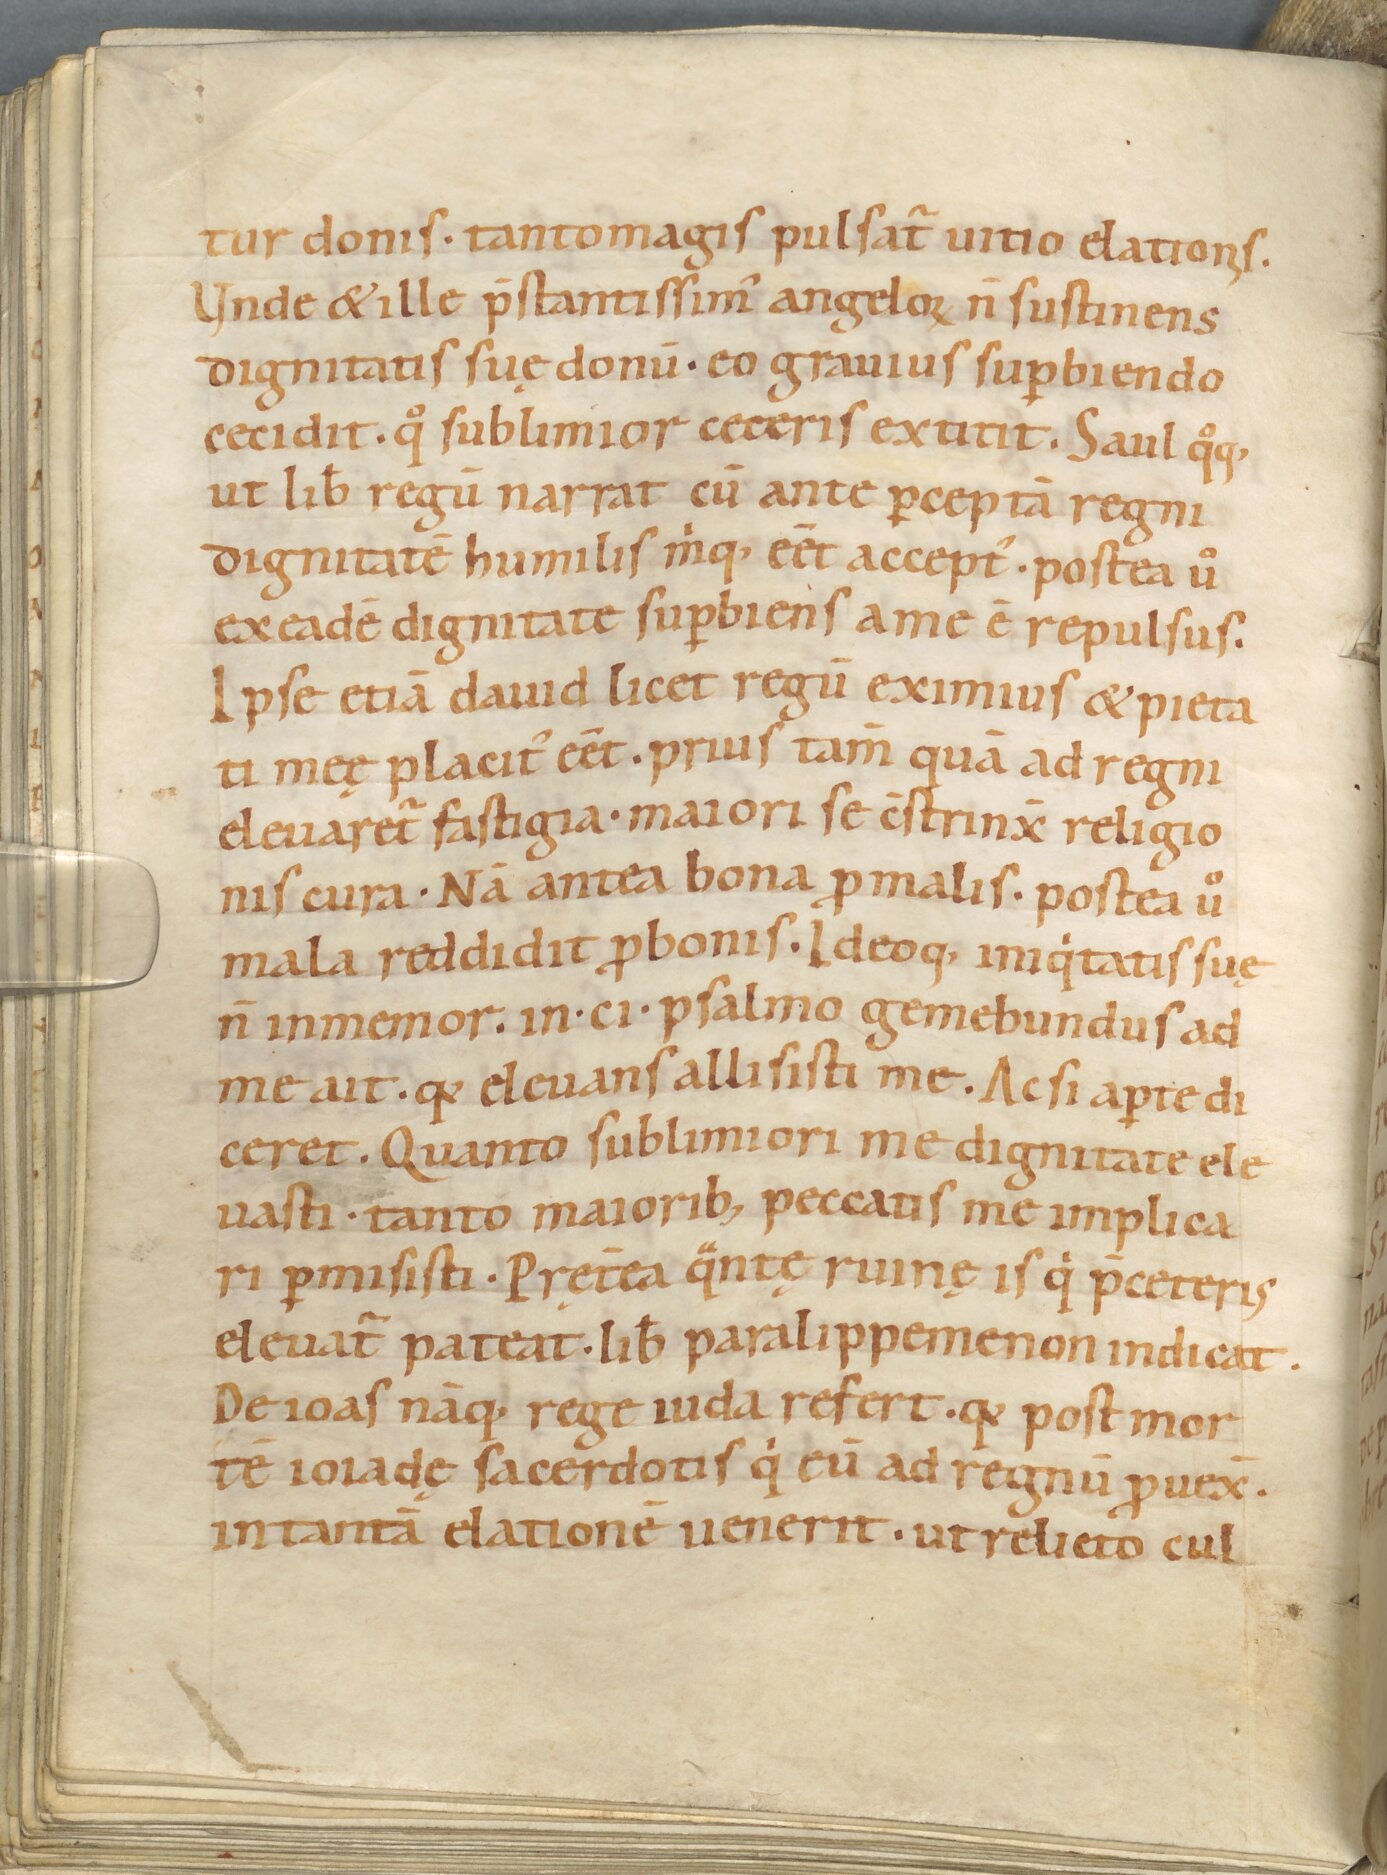 tur donis· tantomagis pulsat᷑ uitio elationis.
Unde & ille p̄stantissimꝰ angeloꝝ n̄ sustinens
dignitatis suę donū· eo grauius suꝑbiendo
cecidit· qͦ sublimior ceteris extitit. Saul qͦq;
ut lib̄ regū narrat cū ante ꝑceptā regni
dignitatē humilis m̍q; eēt acceptꝰ· postea uͦ
exeadē dignitate suꝑbiens a me ē repulsus.
Ipse etiā dauid licet regū eximius & pieta
ti meę placitꝰ eēt· prius tam̄ quā ad regni
eleuaret᷑ fastigia· maiori se c̄strinx̄ religio
nis cura· Nā antea bona ꝓ malis· postea uͦ
mala reddidit ꝓ bonis. Ideoq; iniq̍tatis suę
n̄ inmemor. in·ci· psalmo gemebundus ad
me ait· qꝛ eleuans allisisti me. Ac si aꝑte di
ceret. Quanto sublimiori me dignitate ele
uasti· tanto maiorib; peccatis me implica
ri ꝑmisisti. Pręt̄ea qᷓntę ruinę is q̍ p̄ceteris
eleuat᷑ pateat· lib̄ paralippemenon indicat.
De ioas nāq; rege iuda refert· qꝛ post mor
tē ioiadę sacerdotis q̍ eū ad regnū ꝓuex̄·
in tantā elationē uenerit· ut relicto cul